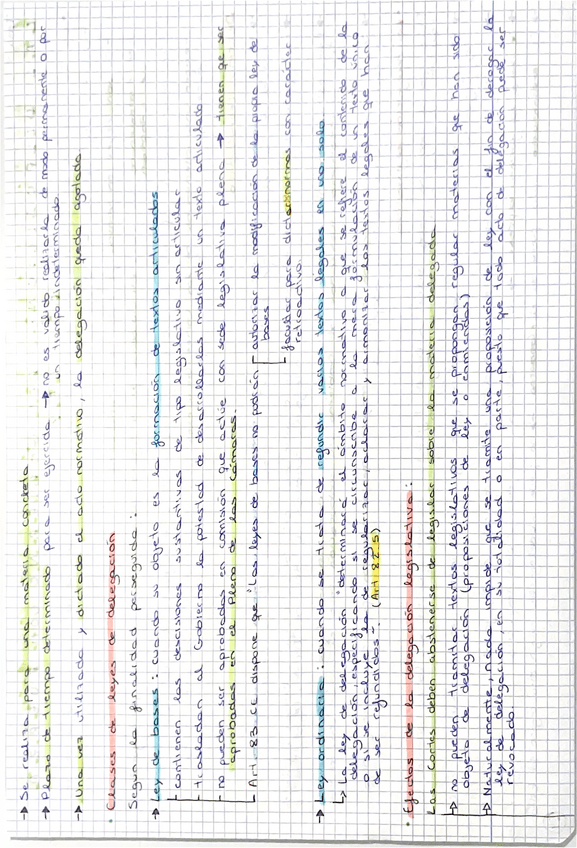 → Se realiza para una materia concreta.
→ Plazo de tiempo determinado para ser ejercida → no es valido realizarla de modo permanente o por
un tiempo indeterminado
→ Una vez utilizada y dictado el acto normativo, la delegación queda agotada
• Clases de leyes de delegación
Segun la finalidad perseguida:
→ Ley de bases: cuando su objeto es la formación de textos articulados
- contienen las descisiones sustantivas de tipo legislativo sin articular
- trasladan al Gobierno la potestad de desarrollarlas mediante un texto articulado
- no pueden ser aprobadas en comisión que actúe con sede legislativa plena → tienen que ser
aprobadas en el Pleno de las Cámaras.
- Art. 83 CE dispone que "las leyes de bases no podrán
autorizar la modificación de la propia ley de
bases
facultar para dictar normas con carácter
retroactivo.
→ Ley ordinaria: cuando se trata de refundir varios textos legales en uno solo
↳ La ley de delegación "determinará el ámbito normativo a que se refiere el contenido de la
delegación, especificando si se circunscribe a la mera formulación de un texto único
o si se incluye la de regularizar, aclarar y armonizar los textos legales que han
de ser refundidos". (Art 82.5)
• Efectos de la delegación legislativa:
Las Cortes deben abstenerse de legislar sobre la materia delegada
↳ no pueden tramitar textos legislativos que se propongan regular materias que han sido
objeto de delegación (proposiciones de ley o enmiendas)
→ Naturalmente, nada impide que se tramite una proposición de ley con el fin de derogar la
ley de delegación, en su totalidad o en parte, puesto que todo acto de delegación puede ser
revocado.